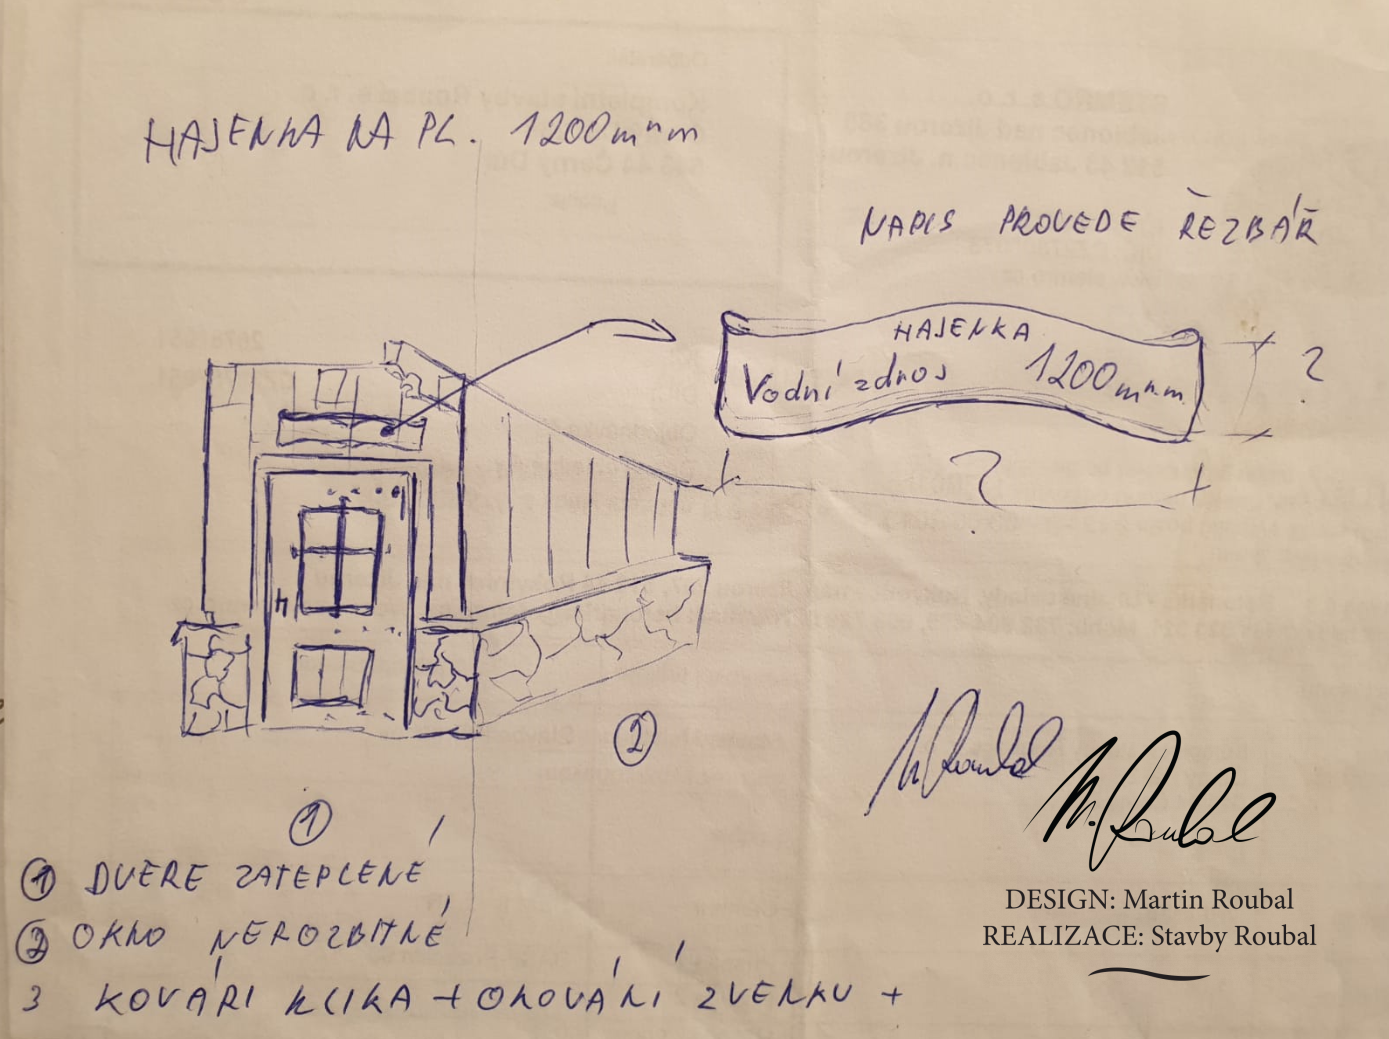 HAJENKA NA PL. 1200 m n m
NAPIS PROVEDE ŘEZBÁŘ
HAJENKA
Vodní zdroj 1200 m n. m.
?
?
2
1
1 DVERE ZATEPLENÉ
2 OKNO NEROZBITNÉ
3 KOVÁŘI KLIKA + OKOVÁNÍ ZVENKU +
M. Roubal
M. Roubal
DESIGN: Martin Roubal
REALIZACE: Stavby Roubal